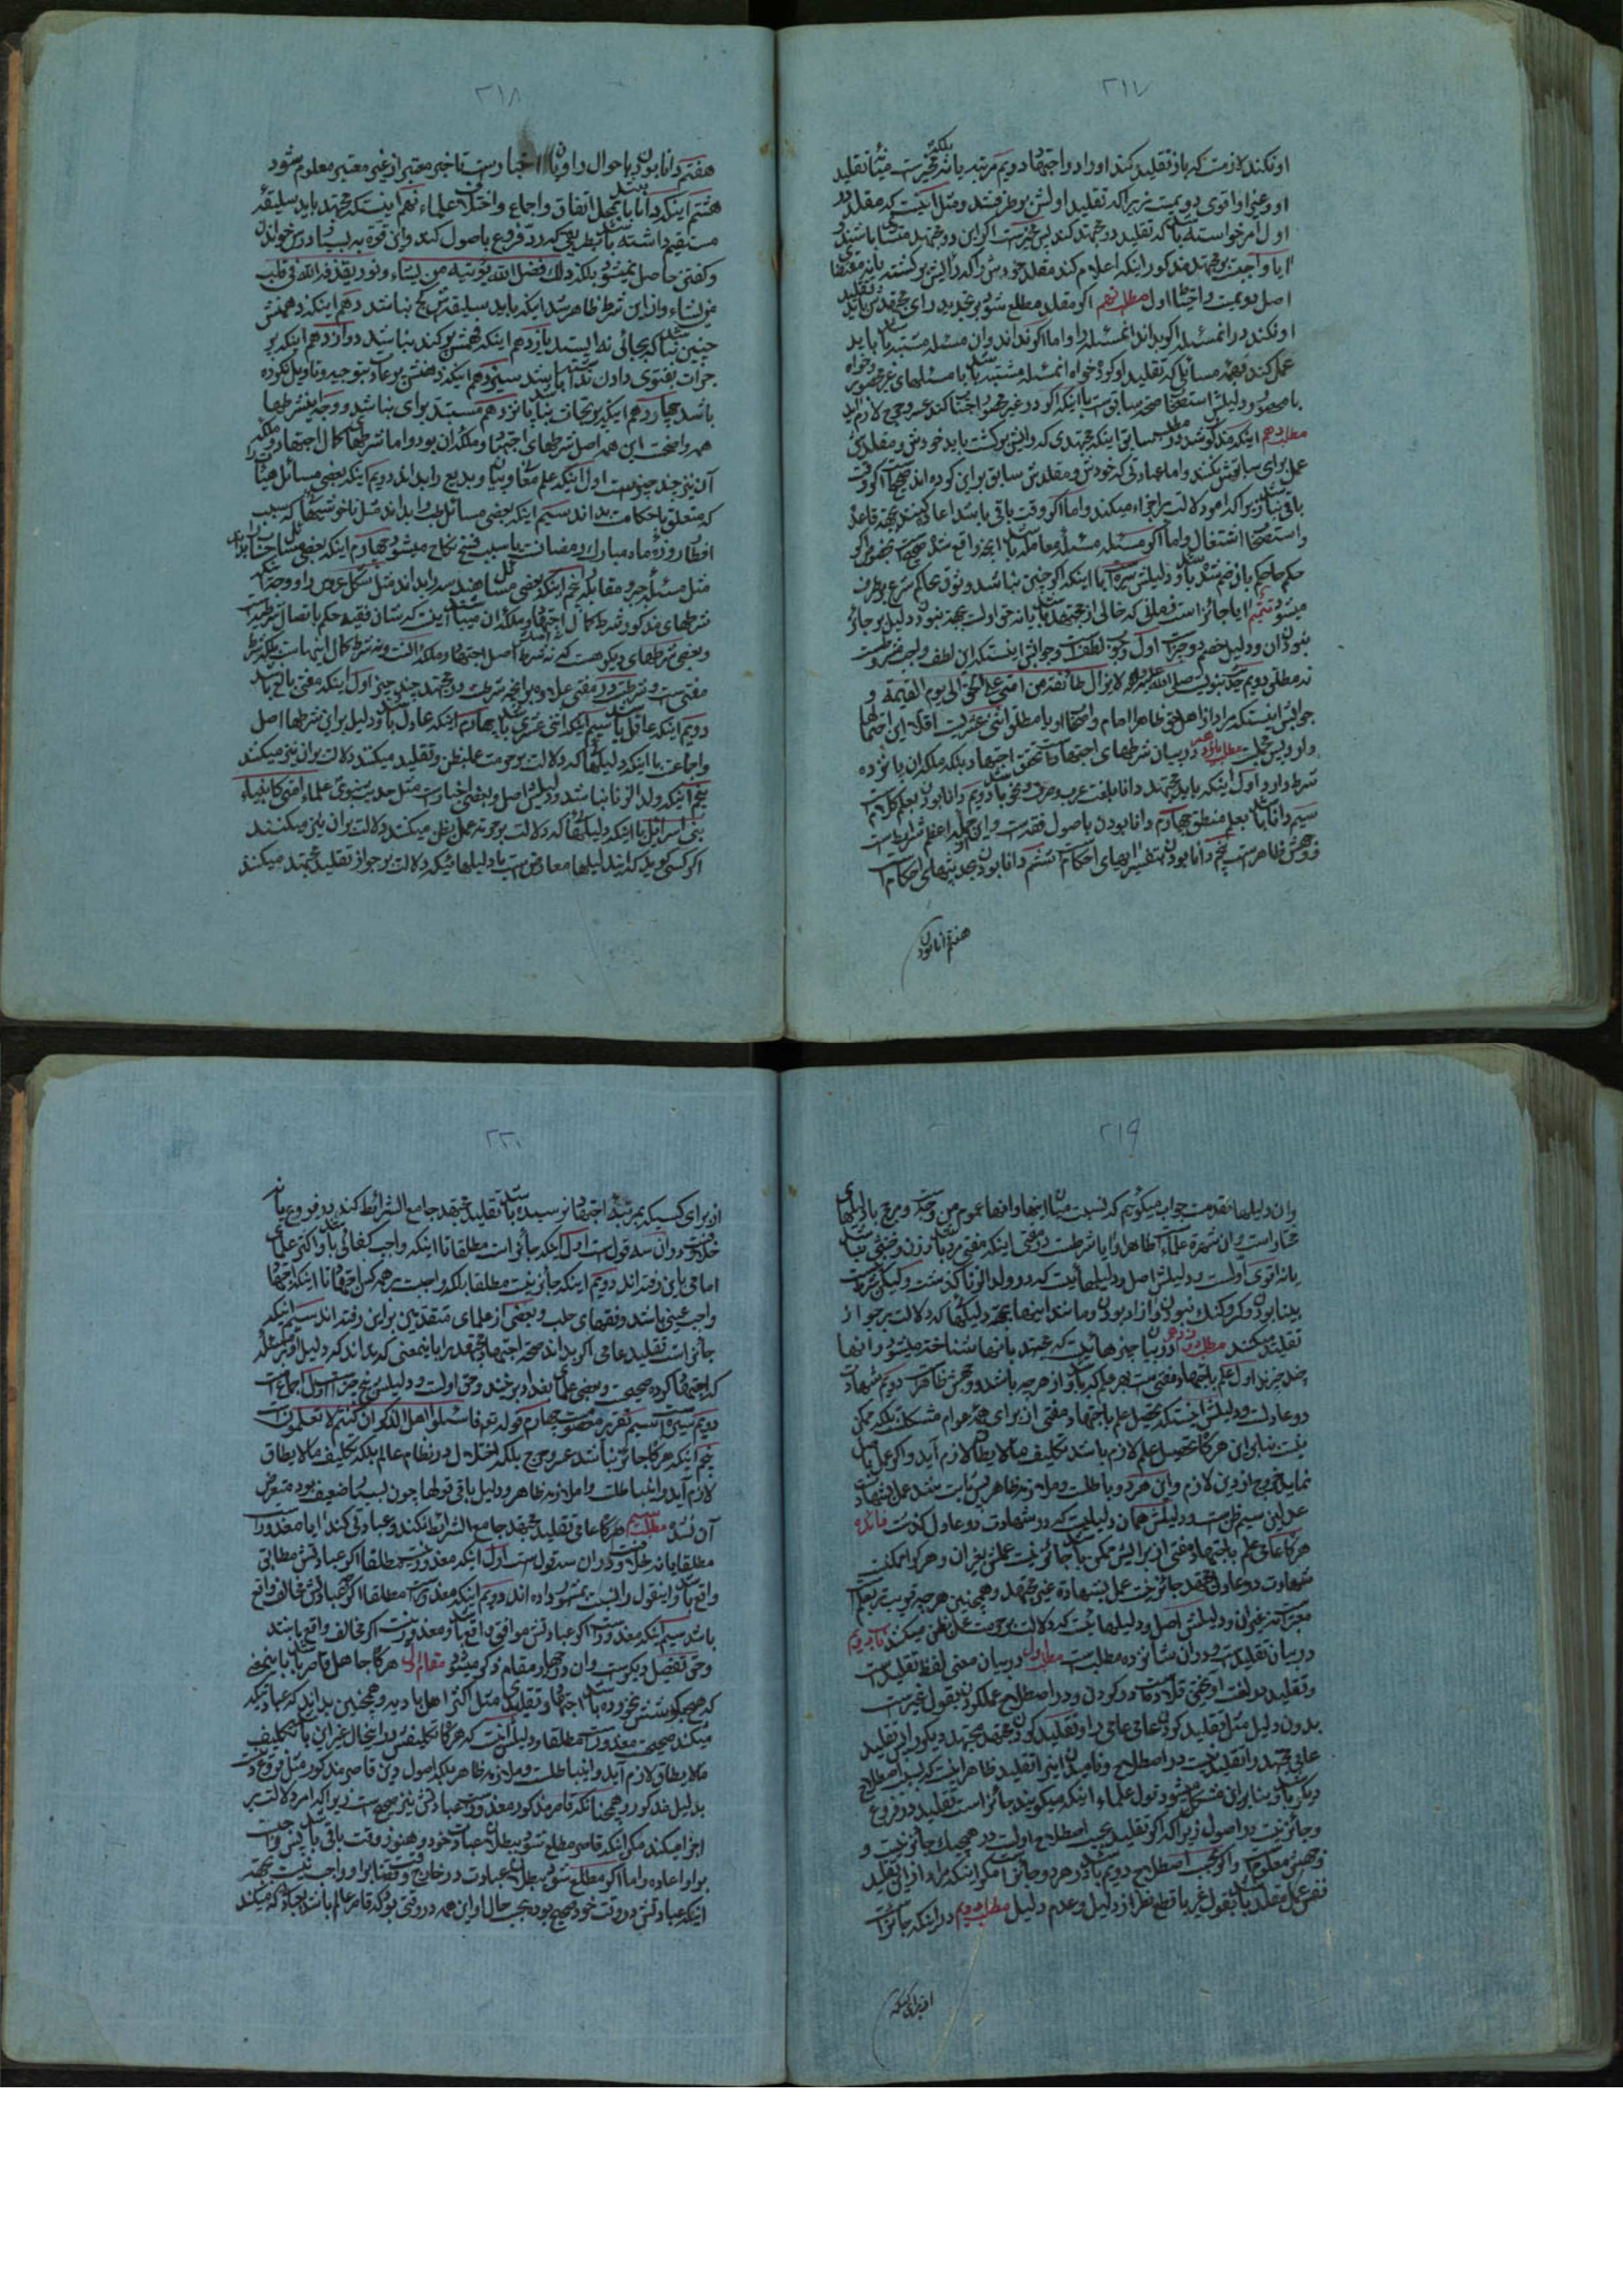 ٢١٧
او نکند لازمست که باز تقلید کند او را در اجتهاد دویم مرتبه یا نه بلکه مخیر است میان تقلید
او و غیر او اقوی دویمست زیراکه تقلید اولش بر طرف شد و مثل اینست که مقلد در
اول امر خواسته باشد که تقلید دو مجتهد کند پس مخیر است اگر این دو مجتهد متساوی باشند و
ایا واجبست بر مجتهد مذکور اینکه اعلام کند مقلد خودش را که رأیش برگشته یا نه مقتضای
اصل دویمست و احتیاط اول مطلب نهم اگر مقلد مطلع شود بر تجدید رای مجتهدش باید تقلید
او نکند در آنمسئله اگر بداند آنمسئله را و اما اگر نداند و آن مسئله مشتبه باشد باید
عمل کند بهمه مسائلی که تقلید او کرده خواه آنمسئله مشتبه باشد با مسئلهای غیر محصور و خواه
با محصور و دلیلش استصحاب صحة سابق است با اینکه اگر در غیر محصور اجتناب کند عسر و حرج لازم آید
مطلب دهم اینکه مذکور شد در مطلب سابق اینکه مجتهدی که رایش برگشت باید خودش و مقلدش
عمل برای سابقش نکنند و اما عباداتی که خودش و مقلدش سابق بر این کرده اند صحیح است اگر وقت
باقی نباشد زیراکه امر دلالت بر اجزاء میکند و اما اگر وقت باقی باشد اعاده کنند بجهة قاعدۀ
و استصحاب اشتغال و اما اگر مسئله مسئلۀ معامله باشد آنچه واقع شده صحیح است بخصوص اگر
حکم حاکم با او ضم شده باشد و دلیلش سیره است با اینکه اگر چنین نباشد وثوق بحاکم شرع بر طرف
میشود تتمیم ایا جائز است زمانی که خالی از مجتهد باشد یا نه حق اولست بجهة نبودن دلیل بر جائز
نبودن آن و دلیل خصم دو چیز است اول وجوب لطف و جوابش اینستکه این لطف واجب مشروطست
نه مطلق دویم حدیث نبویست صلی الله علیه و آله لا یزال طائفة من امتی علی الحق الی یوم القیمة و
جوابش اینستکه مراد از اهل حق ظاهرا امام و اصحاب او یا مطلق اثنی عشریست اقلا این احتمالها
دارد پس مجملست مطلب یازدهم در بیان شرطهای اجتهاد است تحقق اجتهاد بلکه ملکۀ آن پانزده
شرط دارد اول اینکه باید مجتهد دانا بلغت عرب و صرف و نحو باشد دویم دانا بودن بعلم کلام
سیم دانا باشد بعلم منطق چهارم دانا بودن باصول فقه است و این جمله اعظم شرایطست
و وجهش ظاهر است پنجم دانا بودن بتفسیر آیهای احکام است ششم دانا بودن بحدیثهای احکام است
هفتم دانا بودن
٢١٨
هفتم دانا بودن باحوال راویان اخبار است تا خبر معتبر از غیر معتبر معلوم شود
هشتم اینکه دانا باشد بمحل اتفاق و اجماع و اختلاف علماء نهم اینست که مجتهد باید سلیقۀ
مستقیم داشته باشد بطریقی که رد فروع باصول کند و این قوة به بسیار درس خواندن
و گفتن حاصل نمیشود بلکه ذلک فضل الله یؤتیه من یشاء و نور یقذفه الله فی قلب
من یشاء و از این شرط ظاهر شد اینکه باید سلیقه‌اش کج نباشد دهم اینکه ذهنش
چنین نباشد که بجائی نه ایستد یازدهم اینکه ذهنش کند نباشد دوازدهم اینکه پر
جرات بفتوی دادن نداشته باشد سیزدهم اینکه ذهنش بر عادت توجیه و تاویل نکرده
باشد چهاردهم اینکه پر بحاث نباشد پانزدهم مستبد برای نباشد و وجه اینشرطها
همه واضحست این همه اصل شرطهای اجتهاد و ملکۀ آن بود و اما شرطهای کمال اجتهاد و ملکۀ
آن نیز چند چیز است اول اینکه علم معانی و بیان و بدیع را بداند دویم اینکه بعضی مسائل هیأت
که متعلق باحکامست بداند سیم اینکه بعضی مسائل طب را بداند مثل ناخوشیها که سبب
افطار روزۀ ماه مبارک رمضانست یا سبب فسخ نکاح میشود چهارم اینکه بعضی مسائل حساب بداند
مثل مسئلۀ جبر و مقابله پنجم اینکه بعضی مسائل هندسه را بداند مثل شکل عروس را و وجه اینکه
شرطهای مذکور شرط کمال اجتهاد و ملکۀ آن میباشد اینست که شان فقیه حکم باتصال شرطیست
و بعضی شرطهای دیگر هست که نه شرط اصل اجتهاد و ملکۀ آنست و نه شرط کمال اینهاست بلکه شرط
مفتی ست و شرطست در مفتی علاوه بر آنچه شرطست در مجتهد چند چیز اول اینکه مفتی بالغ باشد
دویم اینکه عاقل باشد سیم اینکه اثنی عشری باشد چهارم اینکه عادل باشد و دلیل بر این شرطها اصل
و اجماعست با اینکه دلیلهائی که دلالت بر حرمت عمل بظن و تقلید میکند دلالت بر آن نیز میکند
پنجم اینکه ولد الزنا نباشد و دلیلش اصل و بعضی اخبار است مثل حدیث نبوی علماء امتی کانبیاء
بنی اسرائیل با اینکه دلیلهائی که دلالت بر حرمة عمل بظن میکند دلالت بر آن نیز میکنند
اگر کسی گوید که این دلیلها معارضست با دلیلهائیکه دلالت بر جواز تقلید مجتهد میکند
٢١٩
و آن دلیلها مقدمست جواب میگوئیم که نسبت میان اینها و آنها عموم من وجه است و مرجح با دلیلهای
مختار است و آن شهرة علماء است ظاهرا و ایا شرطست در مفتی اینکه مفتی مرد باشد و زن و خنثی نباشد
یا نه اقوی اولست و دلیلش اصل و دلیلهائیست که در ولد الزنا گذشت و لیکن شرط نیست
بینا بودن و کر و گنگ نبودن و آزاد بودن و مانند اینها بجهة دلیلهائی که دلالت بر جواز
تقلید میکند مطلب دوازدهم در بیان چیزهائیست که مجتهد بآنها شناخته میشود و آنها
چند چیزند اول علم باجتهاد مفتی ست بهر علم که باشد و از هر چه باشد و وجهش ظاهر است دویم شهادت
دو عادلست و دلیلش اینستکه تحصیل علم باجتهاد مفتی از برای همۀ عوام مشکلست بلکه ممکن
نیست بنابراین هر گاه تحصیل علم لازم باشد تکلیف ما لا یطاق لازم آید و اگر عمل باصل
نماید خروج از دین لازم و این هر دو باطلست و ملازمه ظاهر پس ثابت شد عمل بشهادت
عدلین سیم ظن است و دلیلش همان دلیلیست که در شهادت دو عادل گذشت فائده
هر گاه عامی علم باجتهاد مفتی از برایش ممکن باشد جائز نیست عملش بغیر آن و هر گاه ممکنست
شهادت دو عادل مجتهد جائز نیست عمل بشهادة غیر مجتهد و همچنین هر چه قریبست بعلم
معتبر است نه غیر آن و دلیلش اصل و دلیلهائیست که دلالت بر حرمت عمل بظن میکند باب دویم
در بیان تقلید است و در آن شانزده مطلبست مطلب اول در بیان معنی لفظ تقلید است
و تقلید در لغت آویختن قلاده است در گردن و در اصطلاح عمل کردن بقول غیر است
بدون دلیل مثل تقلید کردن عامی عامی را و تقلید کردن مجتهد مجتهد دیگر را پس تقلید
عامی مجتهد را تقلید نیست در اصطلاح و نامیدن این را تقلید ظاهرا نیست که بحسب اصطلاح
دیگر باشد و بنابراین مشکل میشود قول علماء اینکه میگویند جائز است تقلید در فروع
و جائز نیست در اصول زیراکه اگر تقلید بحسب اصطلاح اولست در هیچیک جائز نیست و
وجهش معلوم و اگر بحسب اصطلاح دویم باشد در هر دو جائز است مگر اینکه مراد از این تقلید
نفس عمل مقلد باشد بقول غیر با قطع نظر از دلیل و عدم دلیل مطلب دویم در اینکه جائز است
از برای کسیکه
٢٢٠
از برای کسیکه بمرتبۀ اجتهاد نرسیده باشد تقلید مجتهد جامع الشرائط کند در فروع یا نه
خلافست و در آن سه قولست اول اینکه جائز است مطلقا تا اینکه واجب کفائی باشد و اکثر علمای
امامی باین رفته اند دویم اینکه جائز نیست مطلقا بلکه واجبست بر همه کس اجتهاد تا اینکه اجتهاد
واجب عینی باشد و فقهای حلب و بعضی از علمای متقدمین بر این رفته اند سیم اینکه
جائز است تقلید عامی اگر بداند صحة اجتهاد مجتهد را باینمعنی که بداند که دلیل او در مسئلۀ
که اجتهاد کرده صحیحست و بعضی علمای بغداد بر اینند و حق اولست و دلیلش پنج چیز است اول اجماعست
دویم سیره است سیم تقریر معصوم است چهارم قوله تعالی فاسئلوا اهل الذکر ان کنتم لا تعلمون
پنجم اینکه هر گاه جائز نباشد عسر و حرج بلکه اختلال در نظام عالم بلکه تکلیف ما لا یطاق
لازم آید و اینها باطلست و ملازمه ظاهر و دلیل باقی قولها چون بسیار ضعیف بود متعرض
آن نشد مطلب سیم هر گاه عامی تقلید مجتهد جامع الشرائط نکند و عبادتی کند ایا معذور است
مطلقا یا نه خلافست و در آن سه قولست اول اینکه معذور نیست مطلقا اگر عبادتش مطابق
واقع باشد و اینقول را نسبت بمشهور داده اند دویم اینکه معذور است مطلقا اگر چه عبادتش مخالف واقع
باشد سیم اینکه معذور است اگر عبادتش موافق واقع باشد و معذور نیست اگر مخالف واقع باشد
و حق تفصیل دیگر است و آن در چهار مقام ذکر میشود مقام اول هر گاه جاهل قاصر باشد باینمعنی
که هیچ گوششان نخورده باشد اجتهاد و تقلیدی مثل اکثر اهل بادیه و همچنین بدانند که عبادتیکه
میکند صحیحست معذور است مطلقا و دلیلش اینست که هر گاه تکلیفش در اینحال غیر این باشد تکلیف
ما لا یطاق لازم آید و اینها باطلست و ملازمه ظاهر بلکه اصول دین قاصر مذکور مثل فروع دینست
بدلیل مذکور و همچنانکه قاصر مذکور معذور است عبادتش نیز صحیح است زیراکه امر دلالت بر
اجزا میکند مگر اینکه قاصر مطلع شود ببطلان عبادت خود و هنوز وقت باقی باشد پس واجبست
بر او اعاده و اما اگر مطلع شود ببطلان عبادت در خارج وقت قضا بر او واجب نیست بجهة
اینکه عبادتش در وقت خود صحیح بوده بحسب حال او این همه در وقتی بود که قاصر عالم باشد بعبادتی که میکند